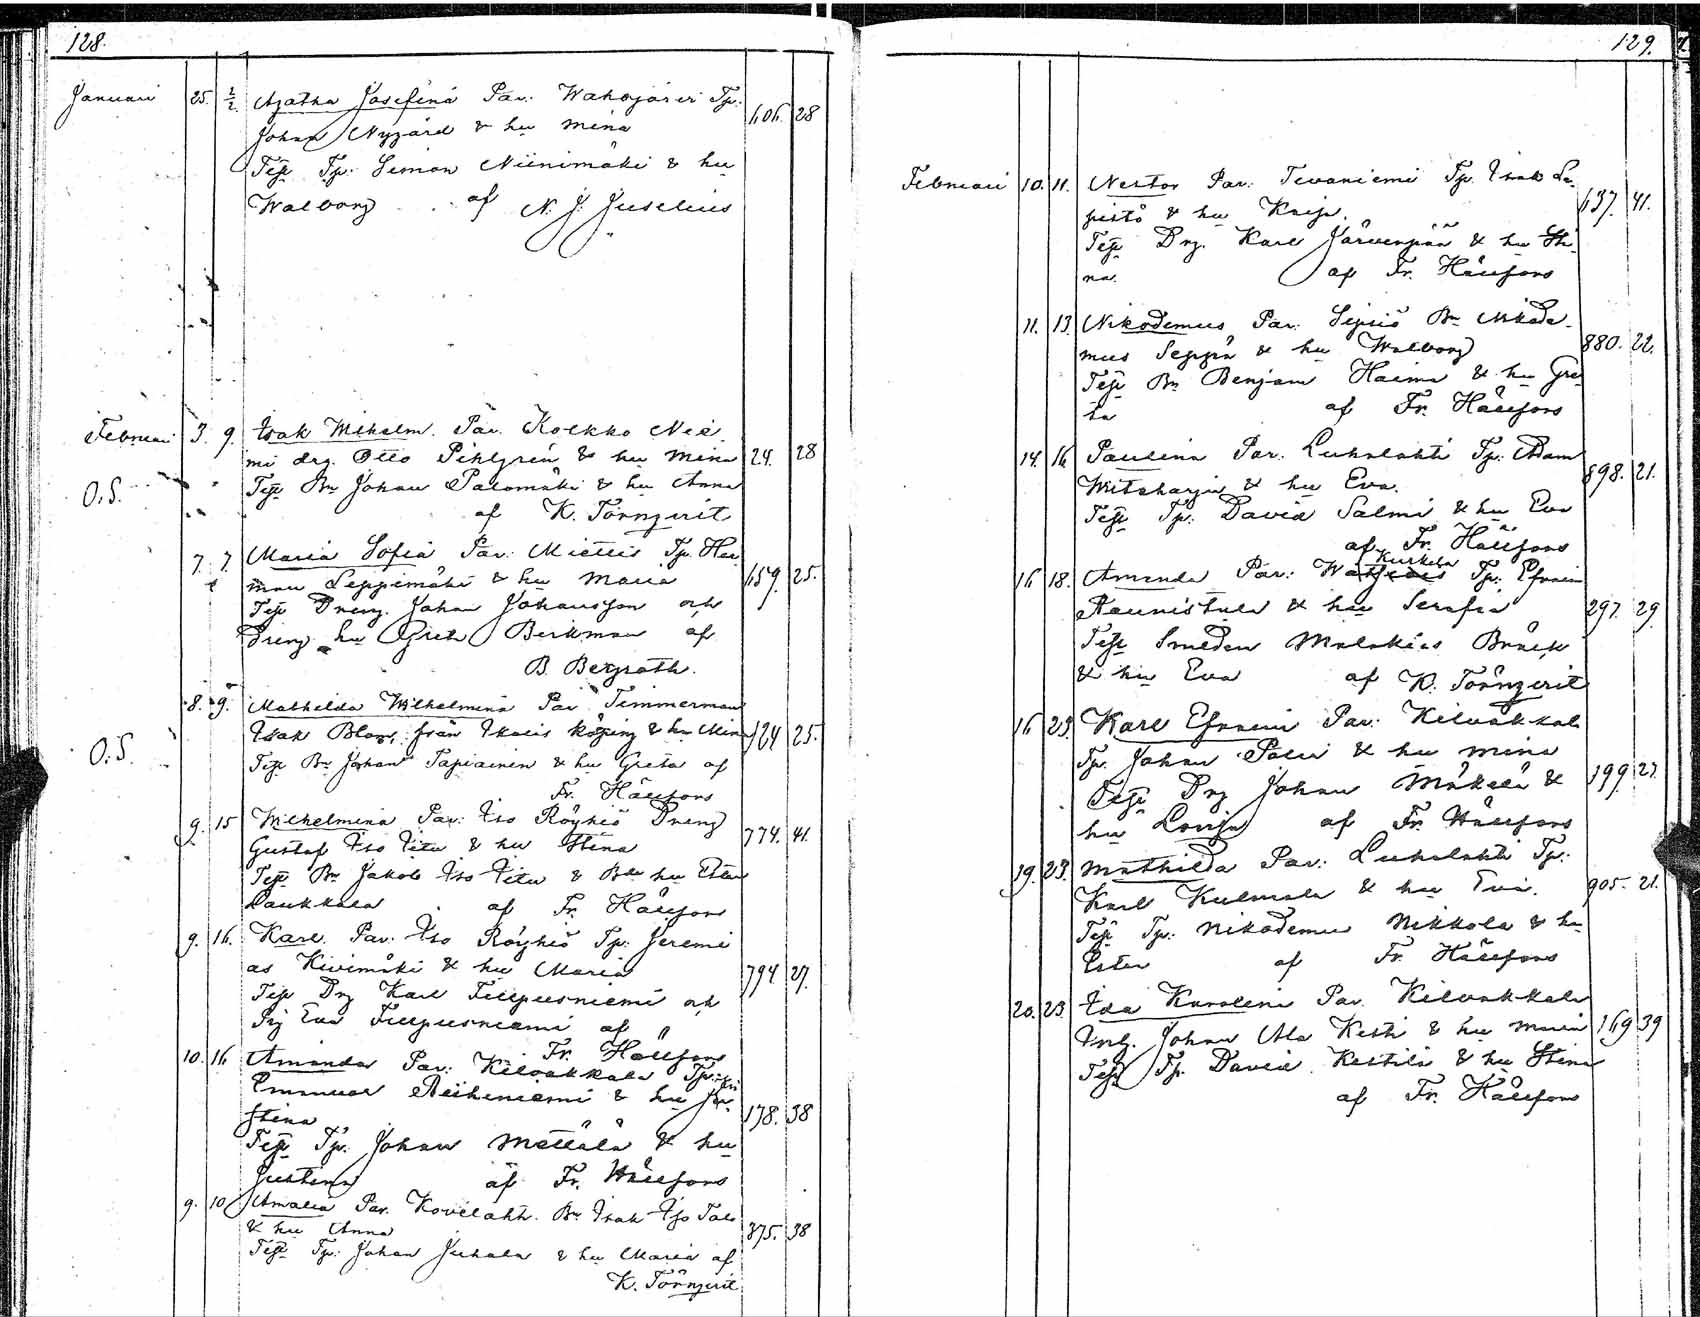 128.
Januari 25. 2/2. Agatha Josefina Par: Wahojärvi Tp:
Johan Nygård & hu Mina 606. 28
Test Tp: Simon Niinimäki & hu
Walborg af N. J. Juselius
Februari 3. 9. Isak Wilhelm. Par. Kolkko Nie
mi drg. Otto Pihlgrén & hu Mina 24. 28
O.S. Test Bn Johan Palomäki & hu Anna
af K. Törnqvist
7. 7. Maria Sofia Par: Miettis Tp. Her
man Leppämäki & hu Maria 659. 25.
Test Dreng. Johan Johansson och
Dreng hu Greta Berkman af
B. Bergroth.
8. 9. Mathilda Wilhelmina Par Timmerman
O.S. Isak Blom från Ikalis köping & hu Mina 124 25.
Test Bn Johan Tapiainen & hu Greta af
Fr. Hällfors
9. 15 Wilhelmina Par: Iso Röyhiö Dreng
Gustaf Iso Iitu & hu Stina 774. 41.
Test Bn Jakob Iso Iitu & Bn hu Ester
Laukkala af Fr. Hällfors
9. 16. Karl. Par: Iso Röyhiö Tp: Jeremi
as Kivimäki & hu Maria 794 27.
Test Drg Karl Filppusniemi och
Pig Eva Filppusniemi af
Fr. Hällfors
10. 16 Amanda Par: Kilvakkala Tp:
Emanuel Riihiniemi & hu
stina 178. 38
Test Tp. Johan Mettälä & hu
Justina af Fr. Hällfors
9. 10 Amalia Par. Kovelaht. Bn Isak Iso Talo
& hu Anna 375. 38
Test Tp: Johan Juhala & hu Maria af
K. Törnqvist
129.
Februari 10. 11. Nestor Par: Tevaniemi Tp. Isak Le-
pistö & hu Kaisa. 637. 41.
Test Drg. Karl Järvenpää & hu Sti-
na. af Fr. Hällfors
11. 13. Nikodemus Par: Sipsiö Bn Nikode-
mus Seppä & hu Walborg 880. 22.
Test Bn Benjam Haima & hu Gre
ta af Fr. Hällfors
14. 16 Paulina Par: Luhalahti Tp: Adam
Witaharju & hu Eva. 898. 21.
Test Tp: David Salmi & hu Eva
af Fr. Hällfors
Kurkela
16 18. Amanda Par: Tp: Efraim
Raunistula & hu Serafia 297. 29
Test Smeden Malakias Bräck
& hu Eva af K. Törnqvist
16 23. Karl Efraim Par: Kilvakkala
Tp. Johan Palu & hu Mina 199. 27
Test Drg Johan Mäkelä &
hu Lovisa af Fr. Hällfors
19. 23. Mathilda Par: Luhalahti Tp:
Karl Kulmala & hu Eva. 905. 21.
Test Tp: Nikodemus Nikkola & hu
Ester af Fr. Hällfors
20. 23. Ida Karolina Par. Kilvakkala
Johan Ala Kesti & hu Maria 169 39
Test Tp. David Kestilä & hu Stina
af Fr. Hällfors